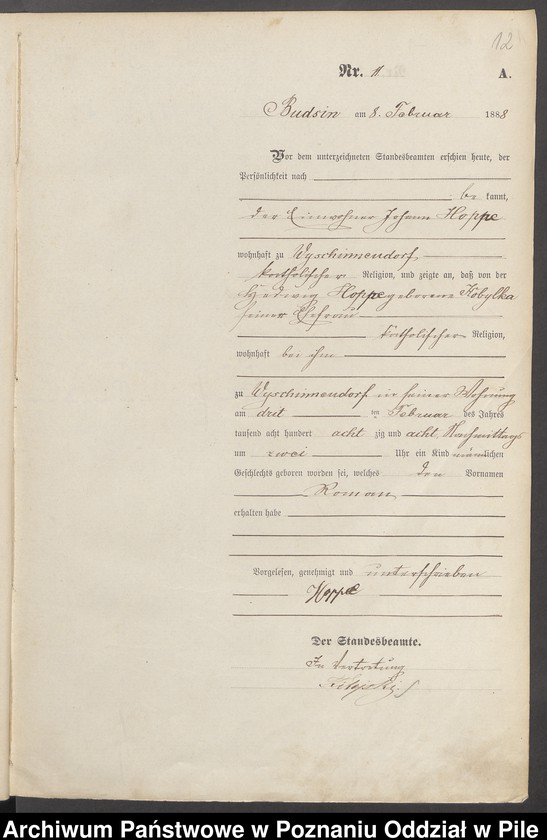 12
Nr. 11 A.
Budsin am 8. Februar 1888
Vor dem unterzeichneten Standesbeamten erschien heute, der
Persönlichkeit nach
be kannt,
der Einwohner Johann Hoppe
wohnhaft zu Wyschinnendorf
katholischer Religion, und zeigte an, daß von der
Hedwig Hoppe geborene Kobylka
seiner Ehefrau
katholischer Religion,
wohnhaft bei ihm
zu Wyschinnendorf in seiner Wohnung
am drit im Februar des Jahres
tausend acht hundert acht zig und acht, Nachmittags
um zwei Uhr ein Kind männlichen
Geschlechts geboren worden sei, welches den Vornamen
Roman
erhalten habe
Vorgelesen, genehmigt und unterschrieben
Hoppe
Der Standesbeamte.
In Vertretung
Archiwum Państwowe w Poznaniu Oddział w Pile